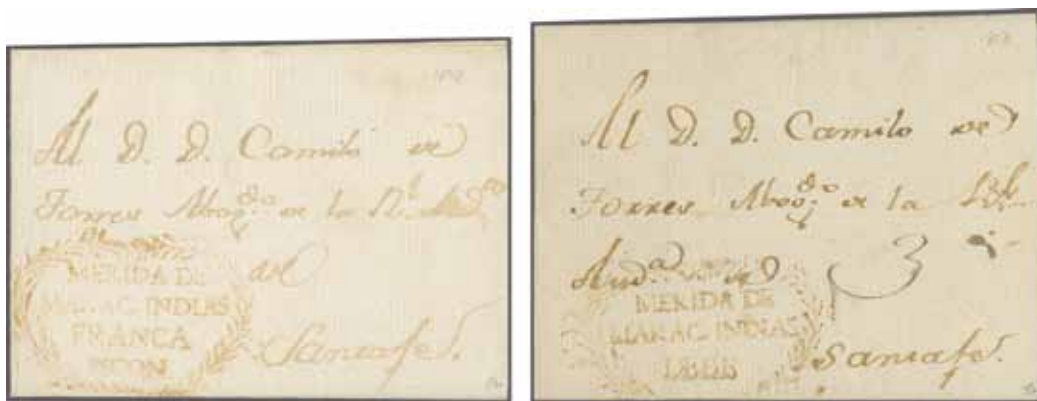 Al D. D. Camilo de
Torres Abog.do de la Rl. Aud.a
de
MERIDA DE
MARAC. INDIAS
FRANCA
Santafe.
Al D. D. Camilo de
Torres Abog.do de la Rl.
Aud.a de
3
MERIDA DE
MARAC. INDIAS
DEBE
Santafe.